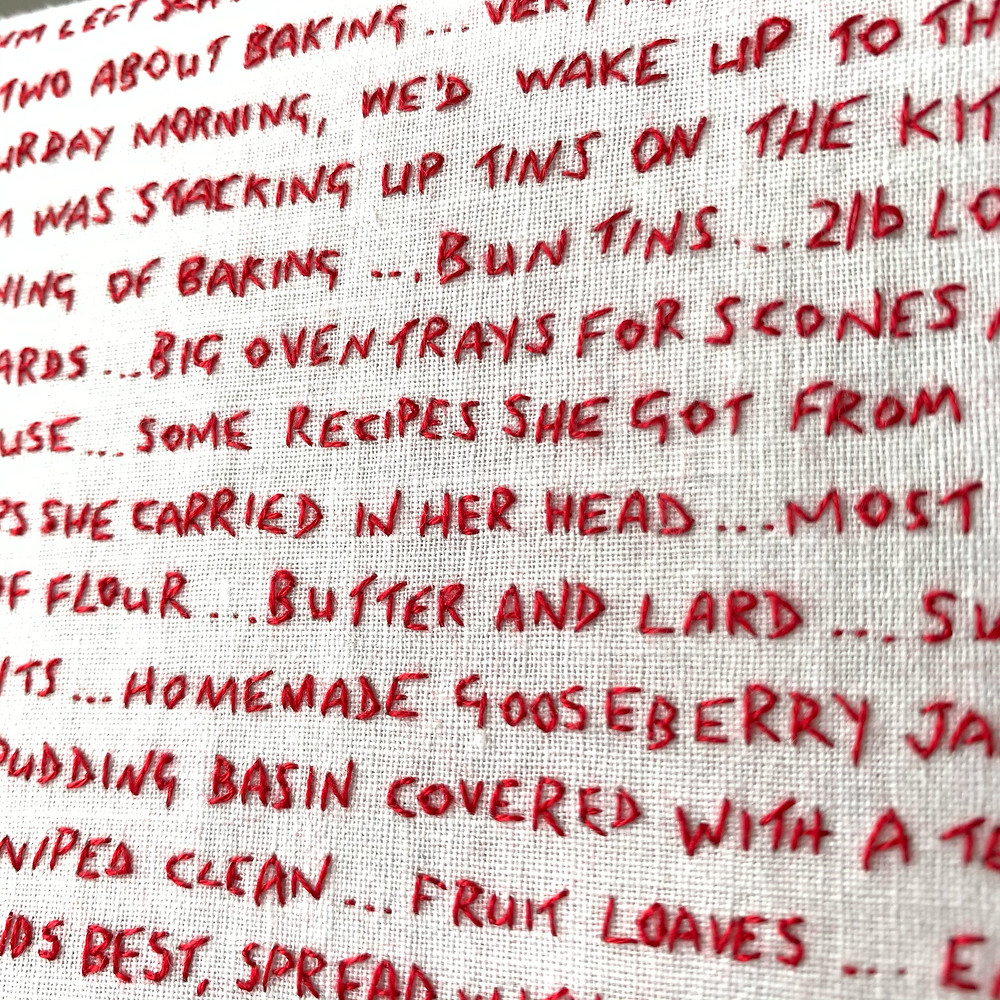 TWO ABOUT BAKING...
MORNING, WE'D WAKE UP TO
WAS STACKING UP TINS ON THE
OF BAKING ....BUN TINS...2lb
...BIG OVEN TRAYS FOR SCONES
...SOME RECIPES SHE GOT FROM
SHE CARRIED IN HER HEAD ...MOST
OF FLOUR ...BUTTER AND LARD ...
...HOMEMADE GOOSEBERRY
PUDDING BASIN COVERED WITH A
CLEAN ...FRUIT LOAVES ...
BEST, SPREAD